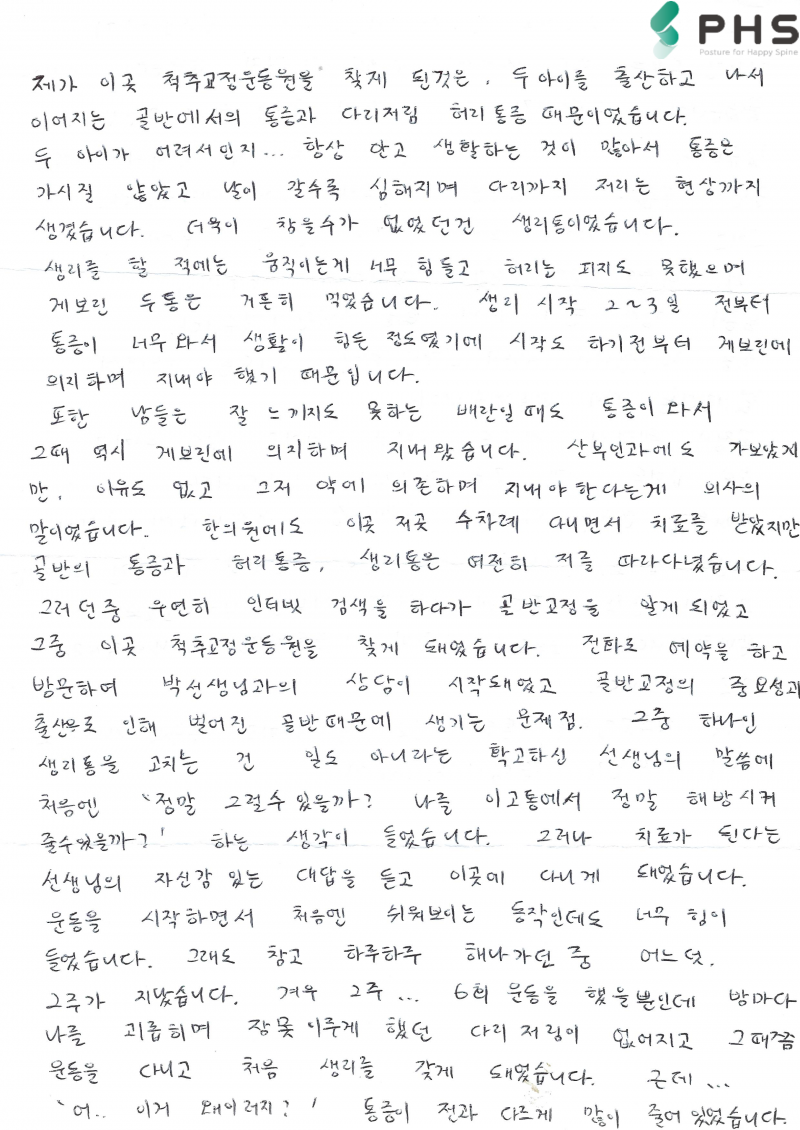 PHS
Posture for Happy Spine
제가 이곳 척추교정운동원을 찾게 된것은, 두아이를 출산하고 나서
이어지는 골반에서의 통증과 다리저림 허리통증 때문이었습니다.
두 아이가 어려서인지... 항상 안고 생활하는 것이 많아서 통증은
가시질 않았고 날이 갈수록 심해지며 다리까지 저리는 현상까지
생겼습니다. 더욱이 참을수가 없었던건 생리통이었습니다.
생리를 할 적에는 움직이는게 너무 힘들고 허리는 피지도 못했으며
게보린 두통은 거뜬히 먹었습니다. 생리 시작 2~3일 전부터
통증이 너무 와서 생활이 힘든 정도였기에 시작도 하기전부터 게보린에
의지하며 지내야 했기 때문입니다.
또한 남들은 잘 느끼지도 못하는 배란일때도 통증이 와서
그때 역시 게보린에 의지하며 지내왔습니다. 산부인과에도 가보았지
만, 이유도 없고 그저 약에 의존하며 지내야한다는게 의사의
말이었습니다. 한의원에도 이곳 저곳 수차례 다니면서 치료를 받았지만
골반의 통증과 허리통증, 생리통은 여전히 저를 따라다녔습니다.
그러던중 우연히 인터넷 검색을 하다가 골반교정을 알게되었고
그중 이곳 척추교정운동원을 찾게 돼었습니다. 전화로 예약을 하고
방문하여 박선생님과의 상담이 시작돼었고 골반교정의 중요성과
출산으로 인해 벌어진 골반때문에 생기는 문제점. 그중 하나인
생리통을 고치는 건 일도 아니라는 확고하신 선생님의 말씀에
처음엔 '정말 그럴수있을까? 나를 이고통에서 정말 해방시켜
줄수있을까?' 하는 생각이 들었습니다. 그러나 치료가 된다는
선생님의 자신감 있는 대답을 듣고 이곳에 다니게 돼었습니다.
운동을 시작하면서 처음엔 쉬워보이는 동작인데도 너무 힘이
들었습니다. 그래도 참고 하루하루 해나가던 중 어느덧,
2주가 지났습니다. 겨우 2주... 6회 운동을 했을뿐인데 밤마다
나를 괴롭히며 잠못이루게 했던 다리 저림이 없어지고 그때쯤
운동을 다니고 처음 생리를 갖게 돼었습니다. 근데...
'어.. 이거 왜이러지?' 통증이 전과 다르게 많이 줄어있었습니다.